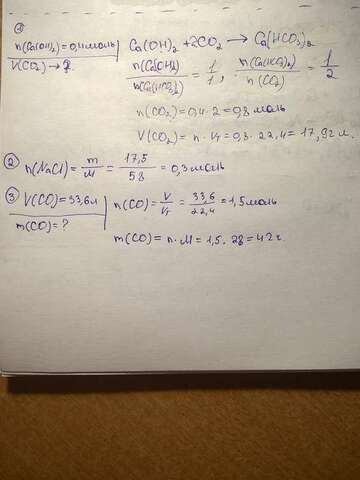 ①
n(Ca(OH)₂)=0,4моль
V(CO₂) → ?
Ca(OH)₂ + 2CO₂ → Ca(HCO₃)₂
n(Ca(OH)₂) / n(Ca(HCO₃)₂) = 1/1, n(Ca(HCO₃)₂) / n(CO₂) = 1/2
n(CO₂) = 0,4 · 2 = 0,8 моль
V(CO₂) = n · Vт = 0,8 · 22,4 = 17,92 л.
② n(NaCl) = m/M = 17,5/58 = 0,3 моль
③ V(CO) = 33,6л
m(CO) = ?
n(CO) = V/Vт = 33,6/22,4 = 1,5 моль
m(CO) = n · M = 1,5 · 28 = 42г.